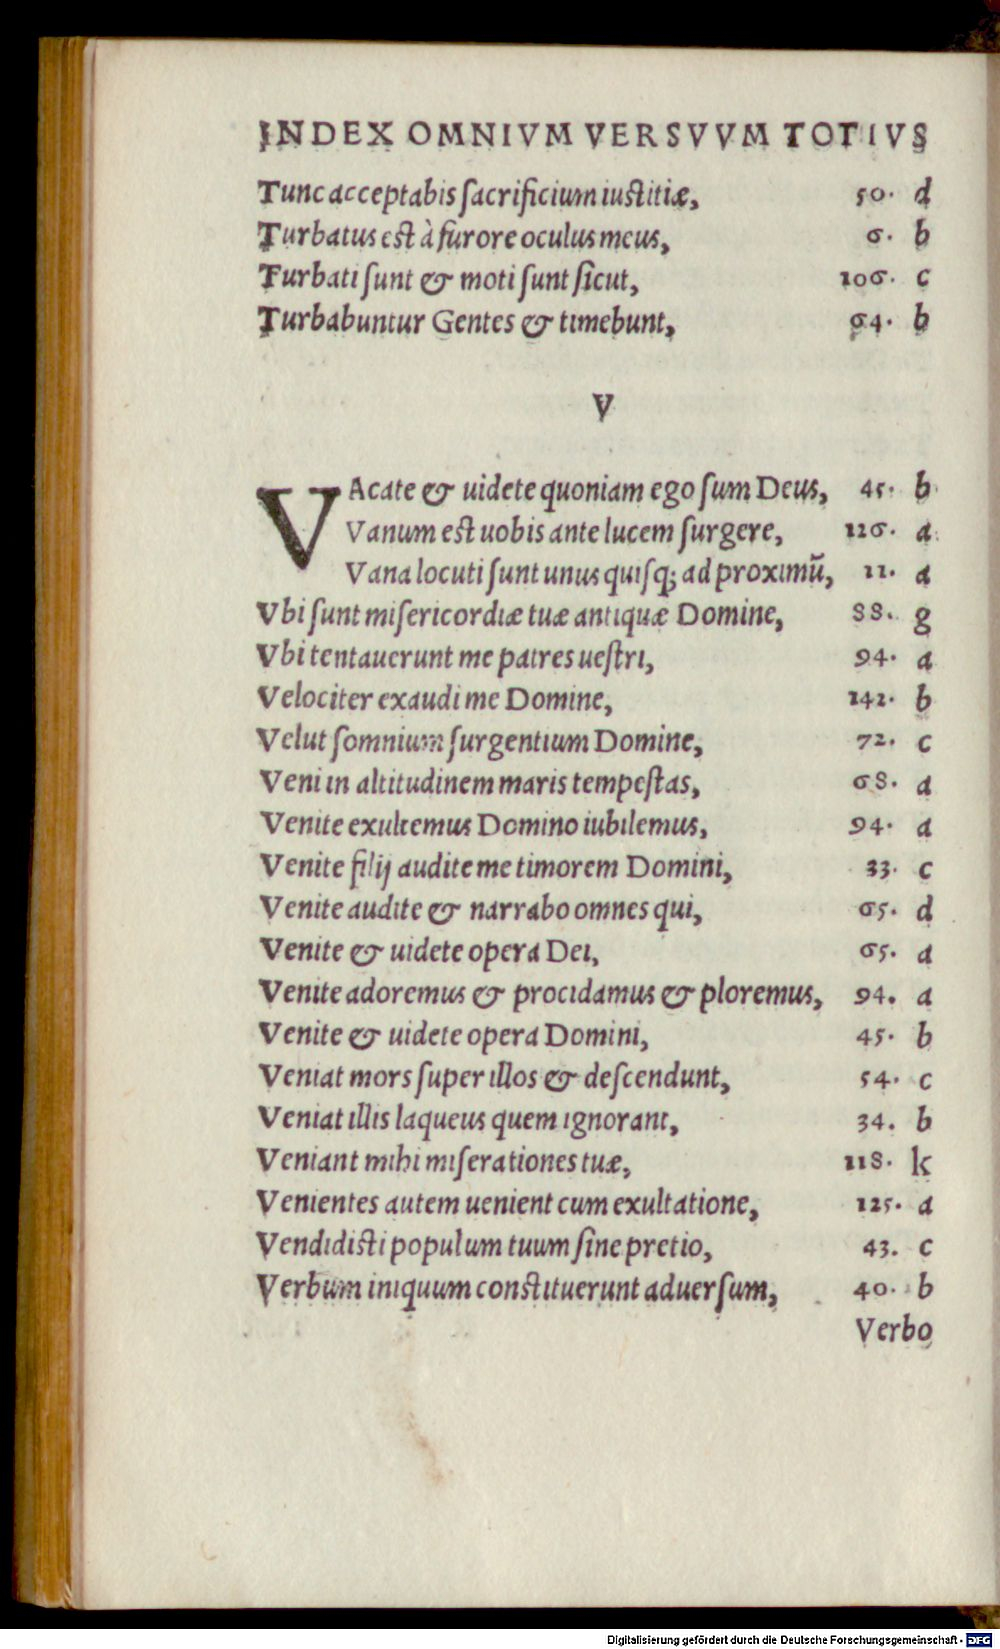 INDEX OMNIVM VERSVVM TOTIVS
Tunc acceptabis ſacrificium iuſtitiæ, 50. d
Turbatus eſt à furore oculus meus, 6. b
Turbati ſunt & moti ſunt ſicut, 106. c
Turbabuntur Gentes & timebunt, 64. b
V
VAcate & uidete quoniam ego ſum Deus, 45. b
Vanum eſt uobis ante lucem ſurgere, 126. a
Vana locuti ſunt unus quiſq; ad proximū, 11. a
Vbi ſunt miſericordiæ tuæ antiquæ Domine, 88. g
Vbi tentauerunt me patres ueſtri, 94. a
Velociter exaudi me Domine, 142. b
Velut ſomnium ſurgentium Domine, 72. c
Veni in altitudinem maris tempeſtas, 68. a
Venite exultemus Domino iubilemus, 94. a
Venite filij audite me timorem Domini, 33. c
Venite audite & narrabo omnes qui, 65. d
Venite & uidete opera Dei, 65. a
Venite adoremus & procidamus & ploremus, 94. a
Venite & uidete opera Domini, 45. b
Veniat mors ſuper illos & deſcendunt, 54. c
Veniat illis laqueus quem ignorant, 34. b
Veniant mihi miſerationes tuæ, 118. k
Venientes autem uenient cum exultatione, 125. a
Vendidiſti populum tuum ſine pretio, 43. c
Verbum iniquum conſtituerunt aduerſum, 40. b
Verbo
Digitalisierung gefördert durch die Deutsche Forschungsgemeinschaft - DFG